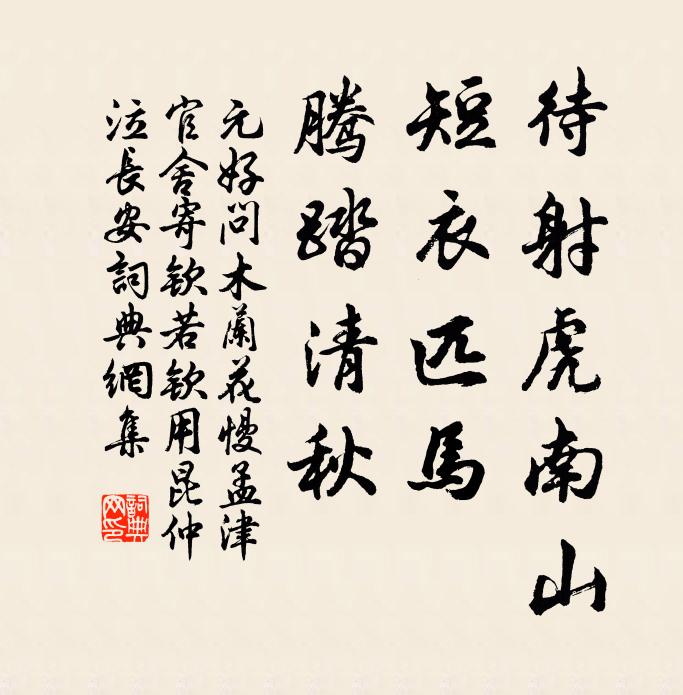 待射虎南山
短衣匹馬
騰踏清秋
元好問木蘭花慢孟津
官舍寄欽若欽用昆仲
泣長安詞典網集
詞典網印